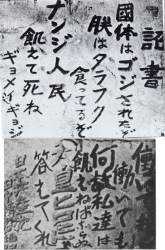 詔書
國体はゴジされたぞ
朕はタラフク
食ってるぞ
ナンジ人民
飢えて死ね
ギョメイギョジ
働いても
働いても
何故私達は
飢えねばならぬか
答えてくれ